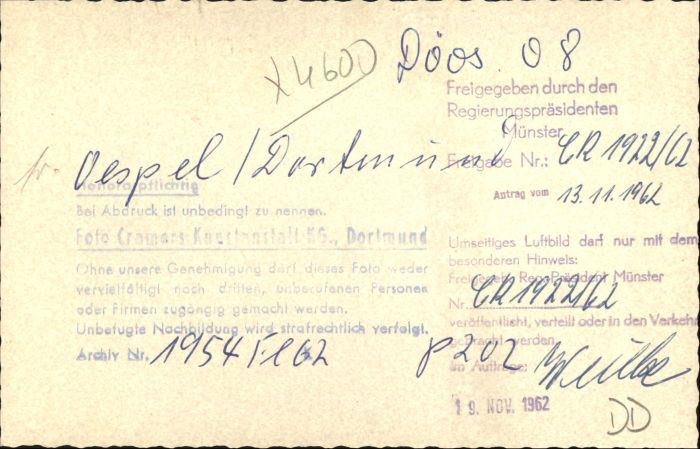 X4600
Döos 08
Freigegeben durch den
Regierungspräsidenten
Münster
Freigabe Nr.: CR 1922/62
Antrag vom 13.11.1962
Oespel/Dortmund
Honorarpflichtig
Bei Abdruck ist unbedingt zu nennen.
Foto Cramers Kunstanstalt KG., Dortmund
Ohne unsere Genehmigung darf dieses Foto weder
vervielfältigt noch dritten, unberufenen Personen
oder Firmen zugängig gemacht werden.
Unbefugte Nachbildung wird strafrechtlich verfolgt.
Archiv Nr. 1954 Fl 62
p 202
Umseitiges Luftbild darf nur mit dem
besonderen Hinweis:
Freigegeb. Reg.-Präsident Münster
Nr. CR 1922/62
veröffentlicht, verteilt oder in den Verkehr
gebracht werden.
Im Auftrage:
19. NOV. 1962
DD